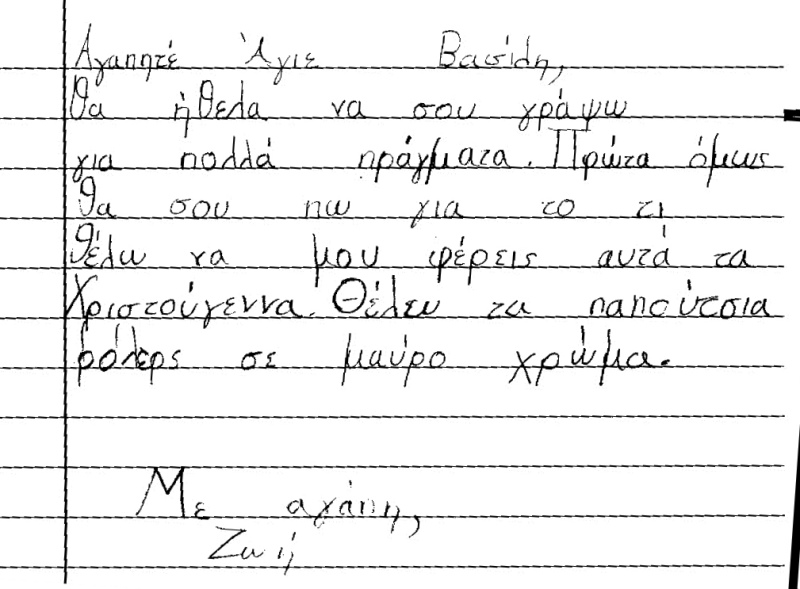 Αγαπητέ Άγιε Βασίλη,
θα ήθελα να σου γράψω
για πολλά πράγματα. Πρώτα όμως
θα σου πω για το τι
θέλω να μου φέρεις αυτά τα
Χριστούγεννα. Θέλω τα παπούτσια
ρόλερς σε μαύρο χρώμα.
Με αγάπη,
Ζωή